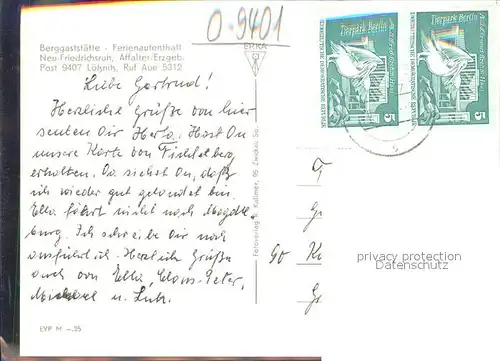 O-9401
Berggaststätte - Ferienaufenthalt
Neu-Friedrichsruh, Affalter/Erzgeb.
Post 9407 Lößnitz, Ruf Aue 5312
ERKA
Tierpark Berlin
Tierpark Berlin
5
5
Liebe Gertrud!
Herzliche Grüße von hier
senden Dir Herta. Hast Du
unsere Karte von Fichtelberg
erhalten. Du siehst Du, daß
ich wieder gut gelandet bin.
Ella fährt nicht nach Magde
burg. Ich schreibe Dir noch
ausführlich. Herzliche Grüße
auch von Ella, Claus-Peter,
u. Lutz.
Fotoverlag K. Kallmer, 95 Zwickau Sa.
privacy protection
Datenschutz
EVP M -.25